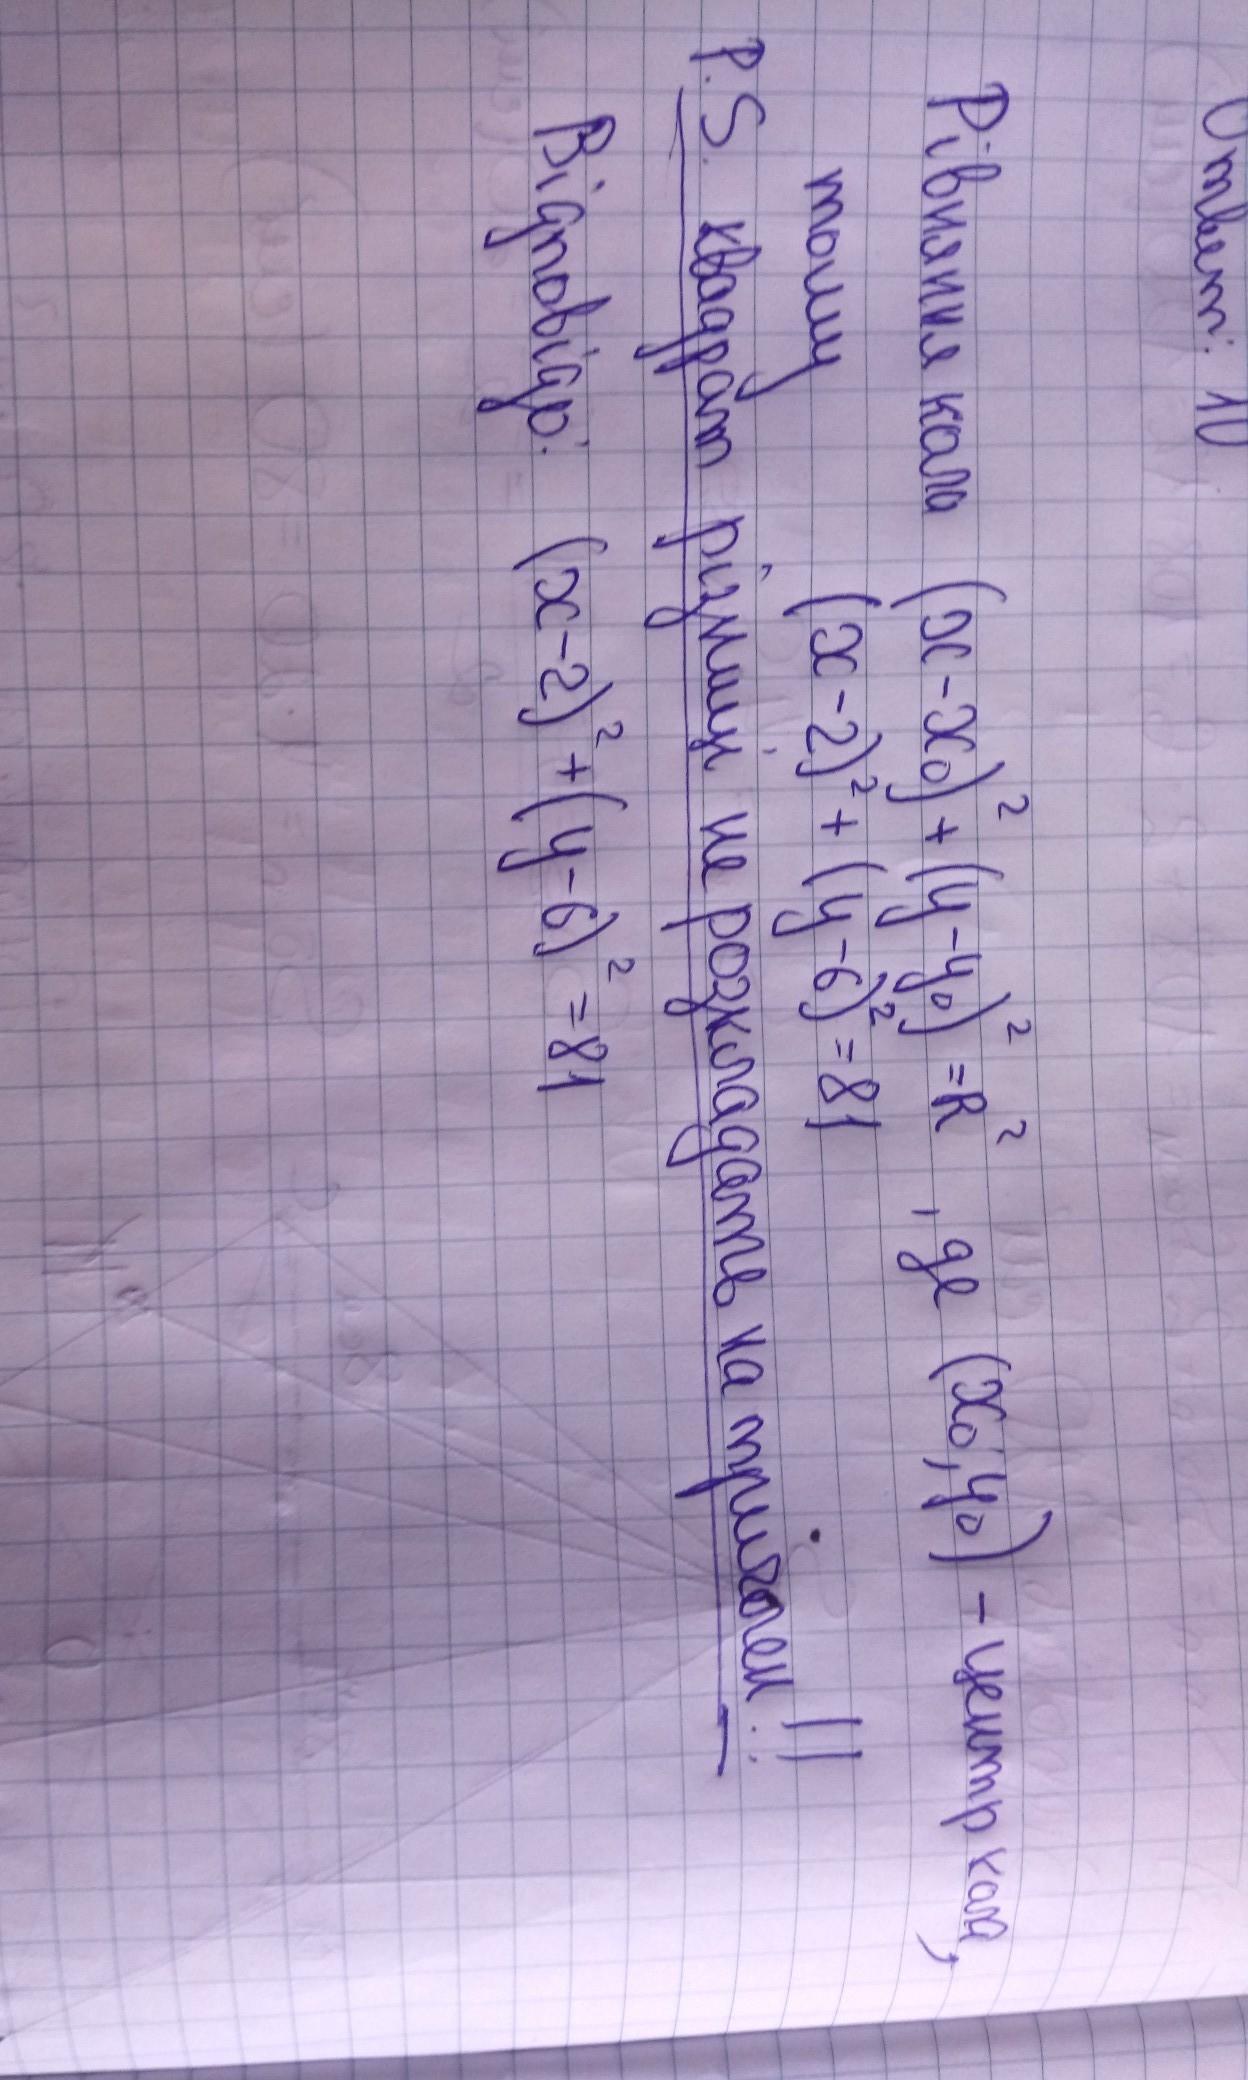 Ответ: 10
Рівняння кола (x-x₀)² + (y-y₀)² = R² , де (x₀; y₀) - центр кола,
тому (x-2)² + (y-6)² = 81
P.S. квадрат різниці не розкладать на приклад !!
Відповідь: (x-2)² + (y-6)² = 81